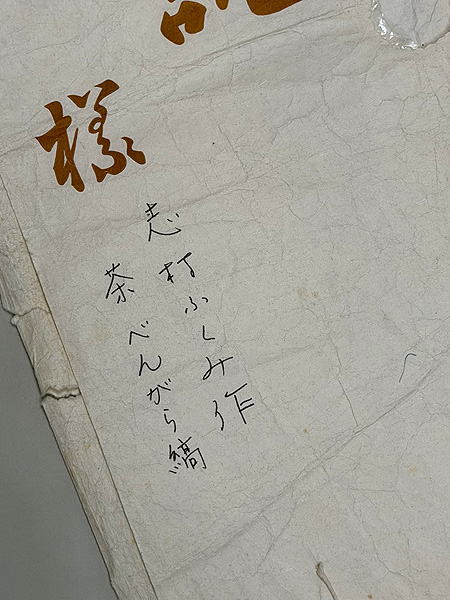 様
志村ふくみ作
茶べんがら縞